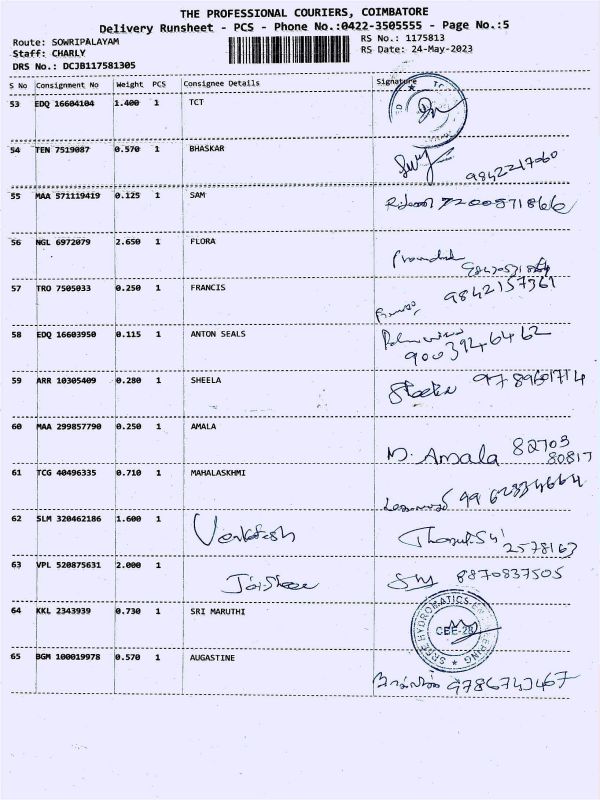 THE PROFESSIONAL COURIERS, COIMBATORE
Delivery Runsheet - PCS - Phone No.:0422-3505555 - Page No.:5
Route: SOWRIPALAYAM RS No.: 1175813
Staff: CHARLY RS Date: 24-May-2023
DRS No.: DCJB117581305
S No Consignment No Weight PCS Consignee Details Signature
53 EDQ 16604104 1.400 1 TCT
54 TEN 7519087 0.570 1 BHASKAR
9842217060
55 MAA 571119419 0.125 1 SAM
7200871866
56 NGL 6972079 2.650 1 FLORA
57 TRO 7505033 0.250 1 FRANCIS
9842157361
58 EDQ 16603950 0.115 1 ANTON SEALS
9003946462
59 ARR 10305409 0.280 1 SHEELA
Sheela
60 MAA 299857790 0.250 1 AMALA
M. Amala 82703
80817
61 TCG 40496335 0.710 1 MAHALASKHMI
62 SLM 320462186 1.600 1 Venkatesh
2578163
63 VPL 520875631 2.000 1 8870837505
64 KKL 2343939 0.730 1 SRI MARUTHI
SREE HYDROMATICS ENGINEERING
CBE-28
65 BGM 100019978 0.570 1 AUGASTINE
9786743467